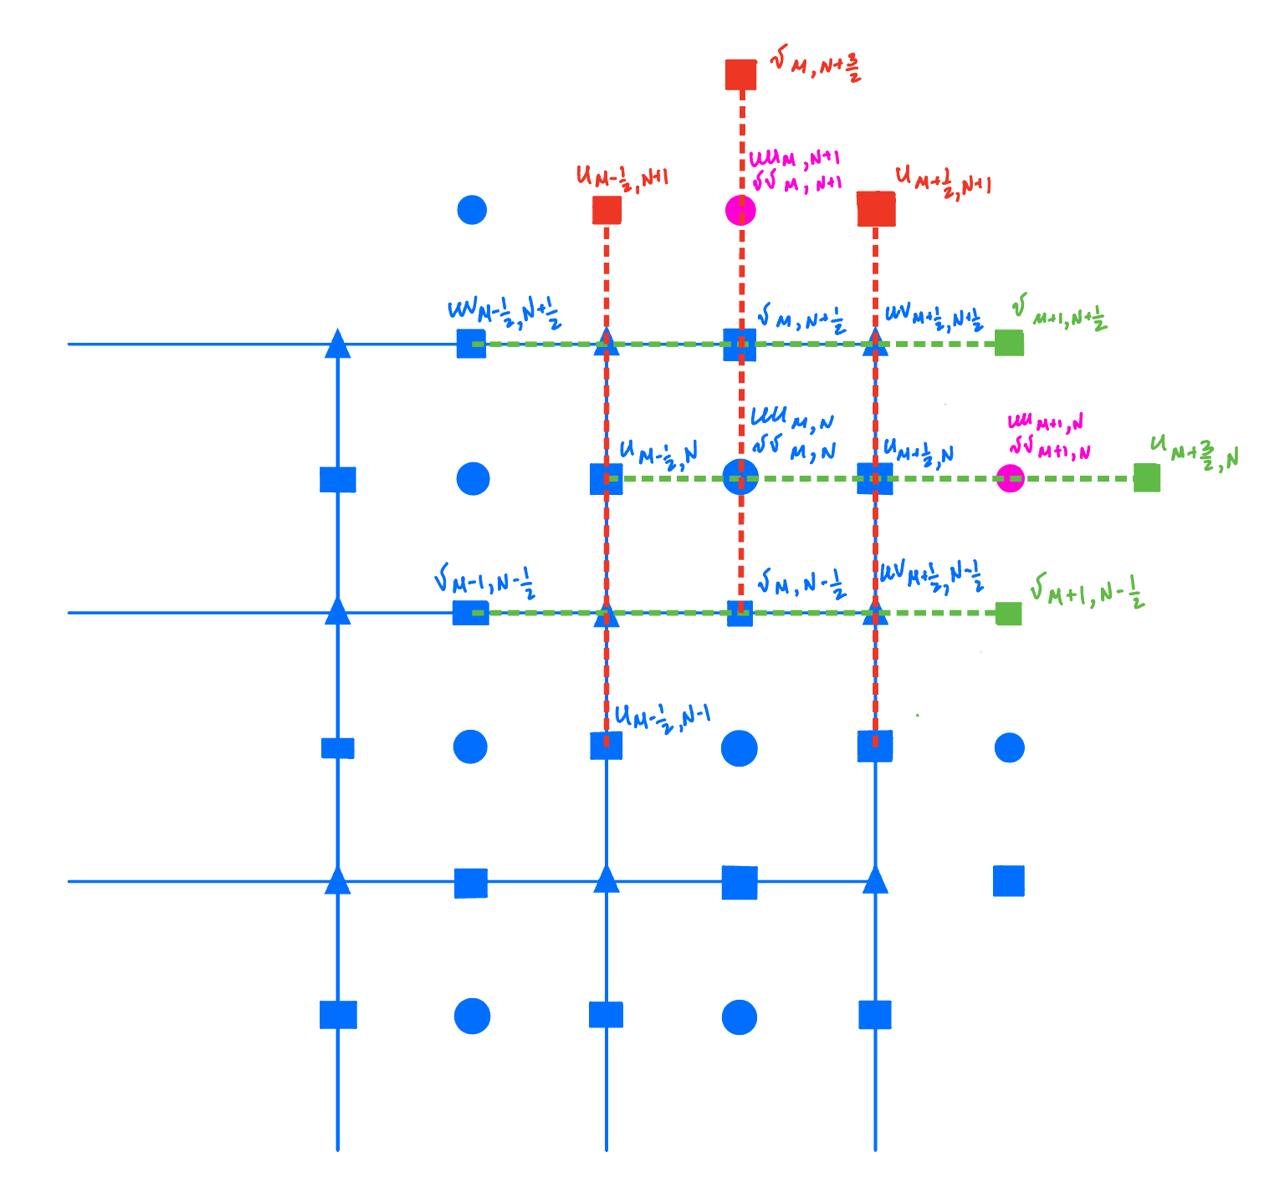 v M, N+3/2
uu M, N+1
vv M, N+1
u M-1/2, N+1
u M+1/2, N+1
uv M-1/2, N+1/2
v M, N+1/2
uv M+1/2, N+1/2
v M+1, N+1/2
uu M, N
vv M, N
u M-1/2, N
u M+1/2, N
uu M+1, N
vv M+1, N
u M+3/2, N
v M-1, N-1/2
v M, N-1/2
uv M+1/2, N-1/2
v M+1, N-1/2
u M-1/2, N-1